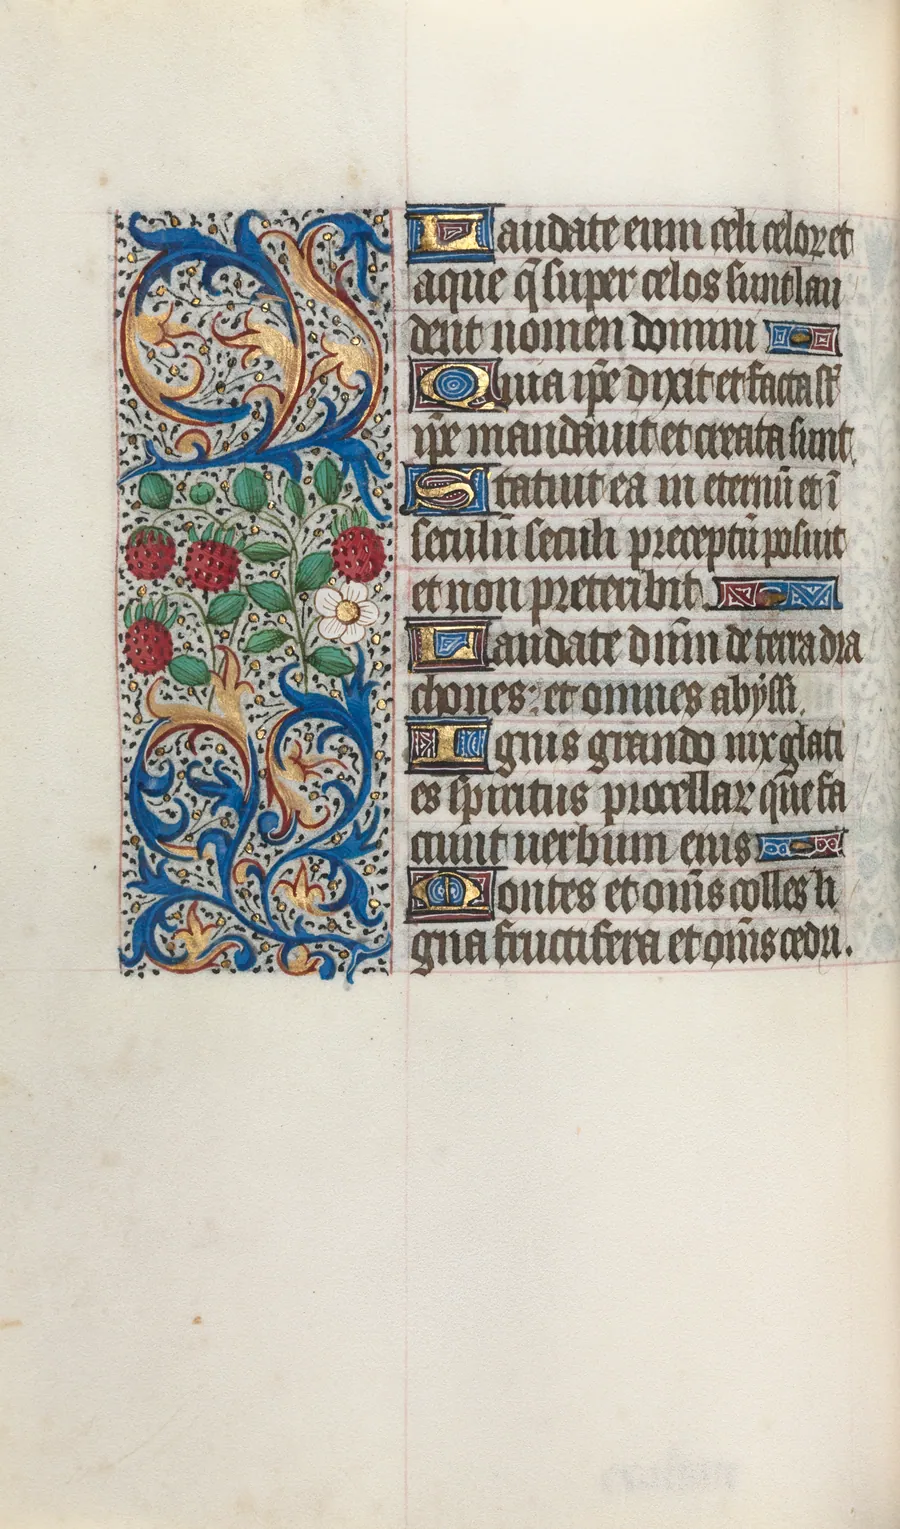 Laudate eum celi celoꝝ et
aque q̄ super celos sunt lau
dent nomen domini
Quia ip̄e dixit et facta sṭ
ip̄e mandauit et creata sunt.
Statuit ea in eternū et ī
seculū seculi preceptū posuit
et non preteribit.
Laudate dn̄m de terra dra
chones: et omnes abyssi.
Ignis grando nix glati
es spiritus procellar que fa
ciunt uerbum eius
Montes et om̄s colles li
gna fructifera et om̄s cedri.